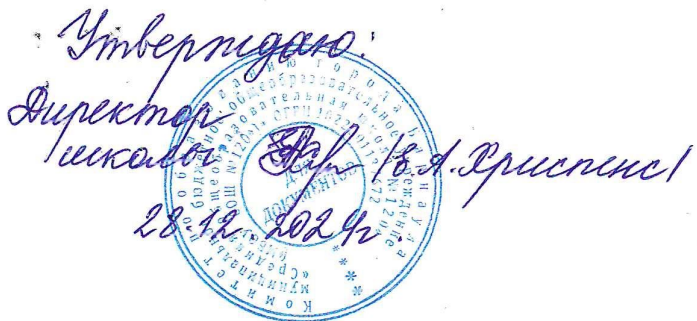 Утверждаю:
Директор
школы /Е.А. Христенс/
28.12.2024г.
Комитет по образованию города Барнаула
муниципальное бюджетное общеобразовательное учреждение
«Средняя общеобразовательная школа №120»
ДЛЯ
ДОКУМЕНТОВ